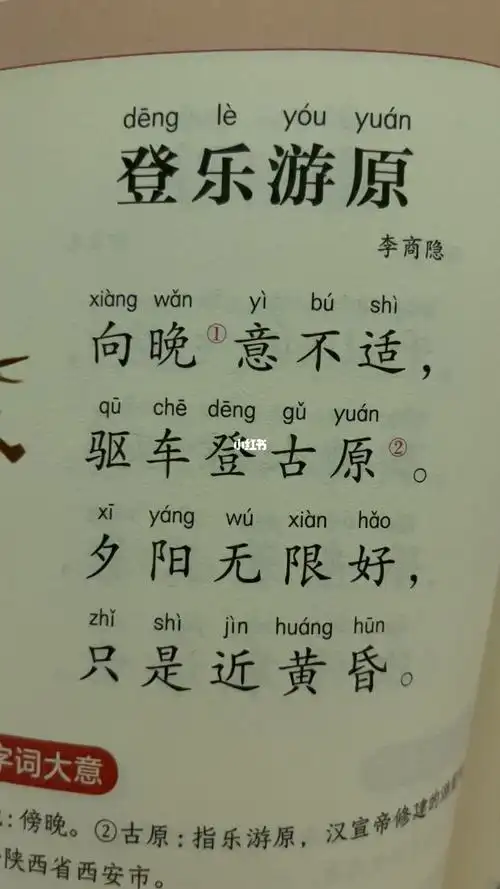 dēng lè yóu yuán
登乐游原
李商隐
xiàng wǎn yì bú shì
向晚①意不适，
qū chē dēng gǔ yuán
驱车登古原②。
小红书
xī yáng wú xiàn hǎo
夕阳无限好，
zhǐ shì jìn huáng hūn
只是近黄昏。
字词大意
：傍晚。②古原：指乐游原，汉宣帝修建的
陕西省西安市。